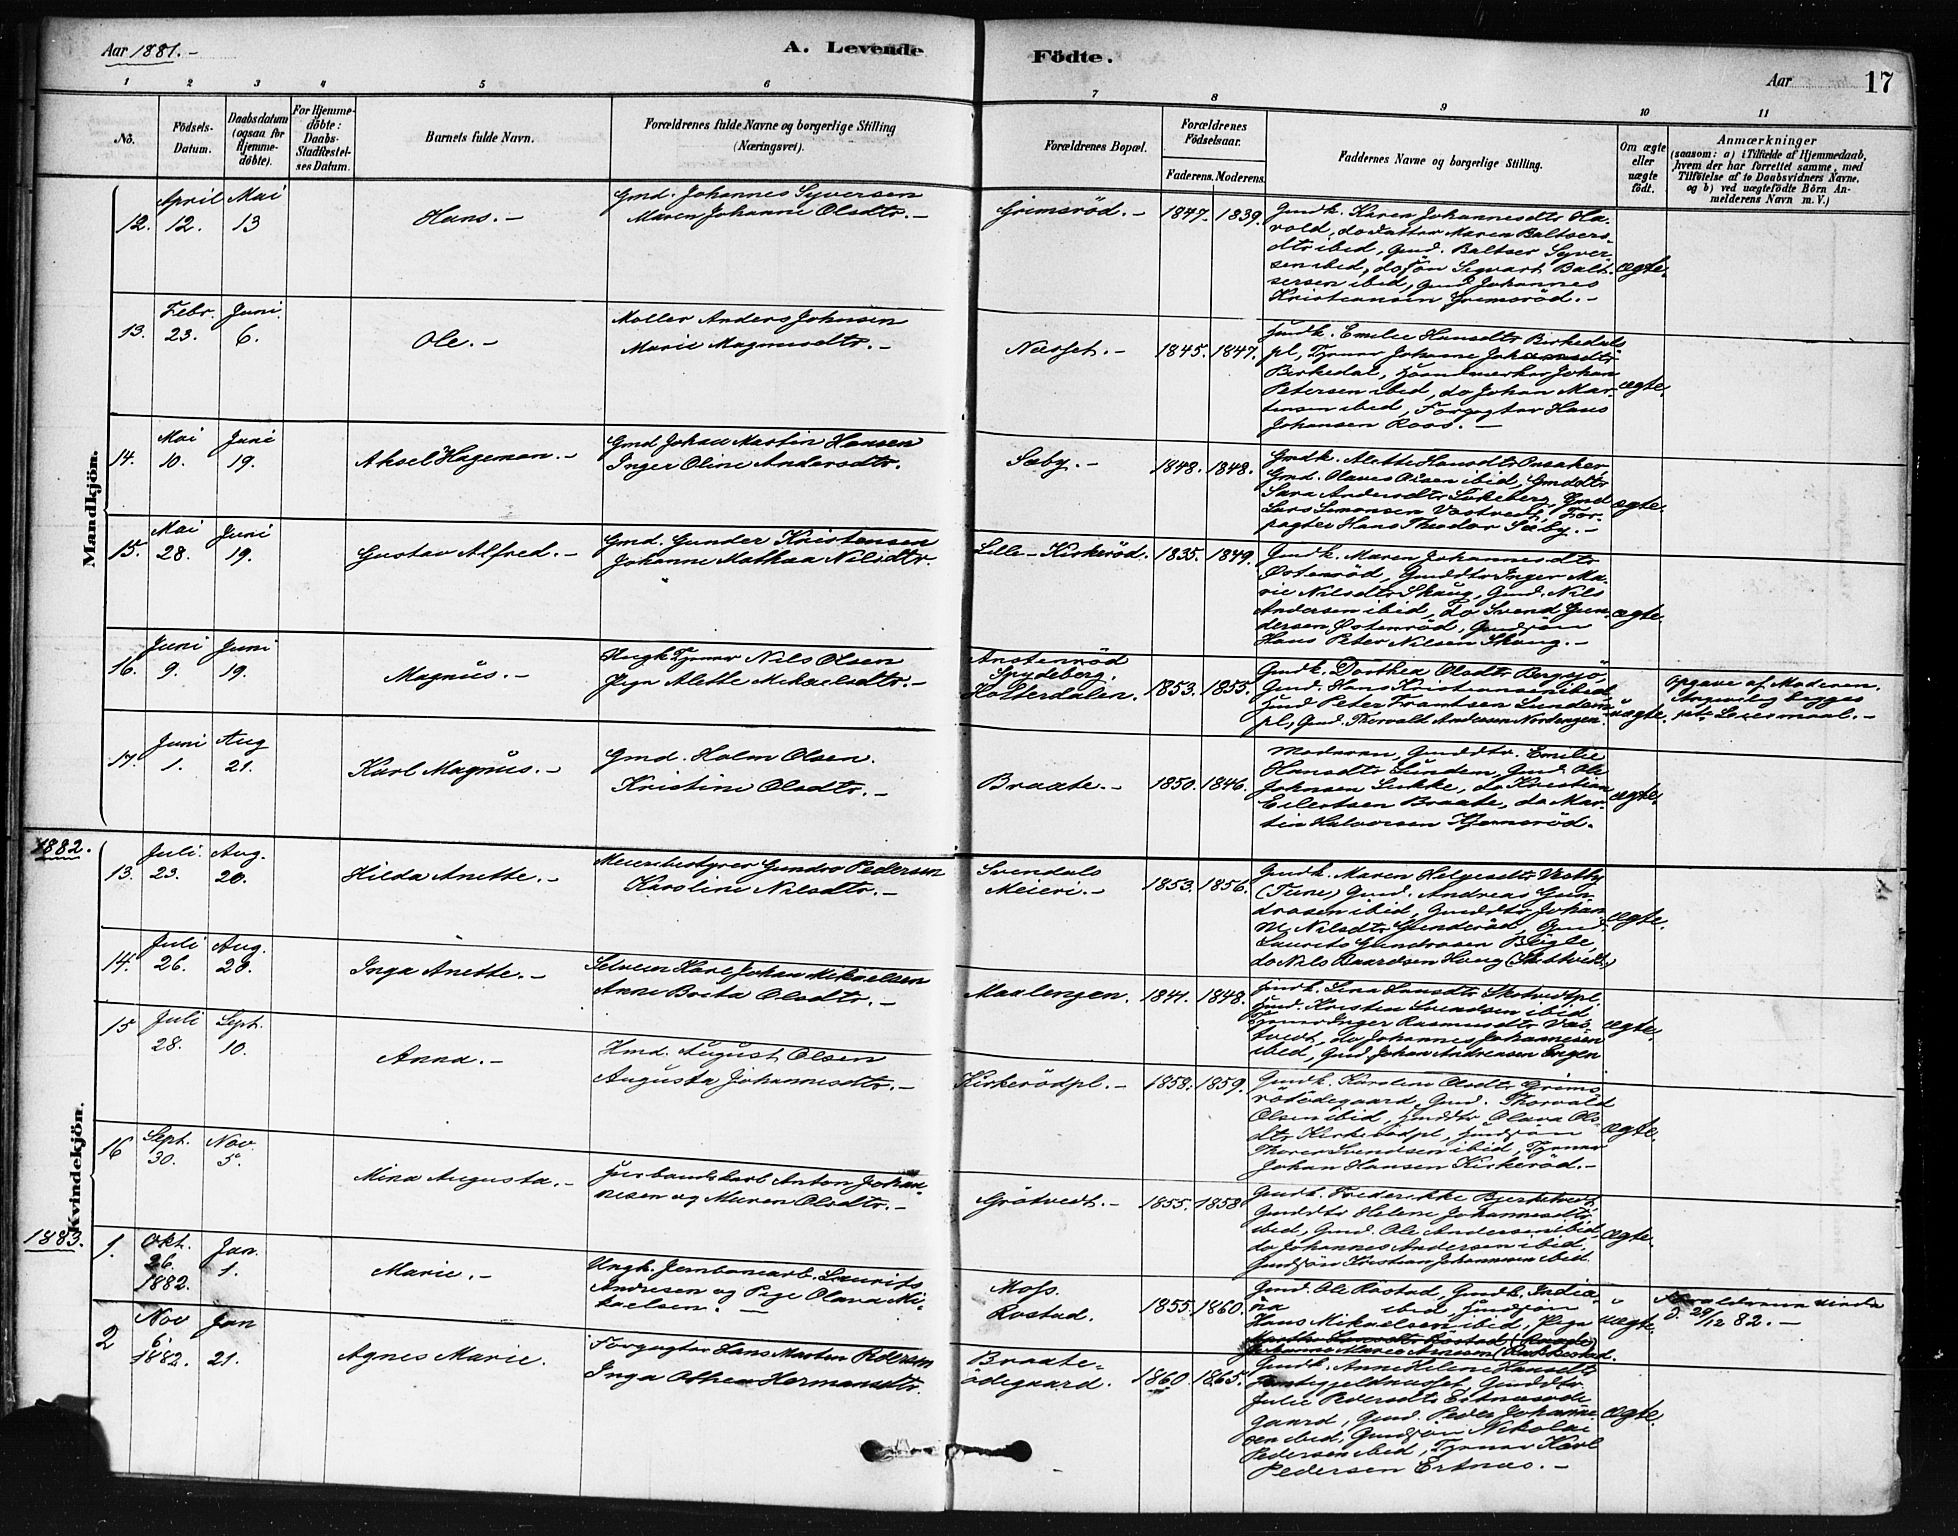 Aar 1881.-
A. Levende Födte.
Aar
17
1 2 3 4 5 6 7 8 9 10 11
No.
Födsels-Datum.
Daabsdatum (ogsaa for Hjemme-döbte).
For Hjemme-döbte: Daabs-Stadfæstel-ses Datum.
Barnets fulde Navn.
Forældrenes fulde Navne og borgerlige Stilling (Næringsvei).
Forældrenes Bopæl.
Forældrenes Födselsaar.
Faderens. Moderens.
Faddernes Navne og borgerlige Stilling.
Om ægte eller uægte födt.
Anmærkninger
(saasom: a) i Tilfælde af Hjemmedaab,
hvem der har forrettet samme, med
Tilföielse af to Daabsvidners Navne,
og b) ved uægtefödte Börn An-
melderens Navn m. V.)
Mandkjön.
12. April 12. Mai 13
Hans.-
Gmd. Johannes Syversen
Maren Johanne Olsdtr.-
Grimsröd.- 1847. 1839.
Gmdk. Karen Johannesdtr Ha-
vold, do datter Maren Baltsers-
dtr ibid, Gmd. Baltser Syver-
sen ibid, do Sön Sigvart Balt-
sersen ibid, Gmd Johannes
Kristiansen Grimsröd.-
ægte.
13. Febr. 23. Juni 6.
Ole.-
Möller Anders Johnsen
Marie Magnusdtr.-
Næsset.- 1845. 1847.
Hmdk. Emilie Hansdtr Birkedals
pl, Tjener Johanne
Birkedal, Johan
Petersen ibid, do Johan Mar-
tensen ibid, Forpagter Hans
Johansen Roos.-
ægte.
14. Mai 10. Juni 19.
Aksel Hageman.-
Gmd Johan Martin Hansen
Inger Oline Andersdtr.
Sæby.- 1848. 1848.
Gmdk. Alette Hansdtr Busaker
Gmd. Olaves Olsen ibid, Gmddtr
Sara Andersdtr Lökeberg, Gmd
Lars Simensen Vestvedt, For-
pagter Hans Theodor Sæby.-
ægte.
15. Mai 28. Juni 19.
Gustav Alfred.-
Gmd. Gunder Kristensen
Johanne Mathea Nilsdtr.
Lille-Kirkeröd. 1835. 1849.
Gmdk. Maren Johannesdtr
Östenröd, Gmddtr Inger Ma-
rie Nilsdtr Skaug, Gmd. Nils
Andersen ibid, do Svend Gun-
dersen Östenröd, Gmdsön
Hans Peter Nilsen Skaug.-
ægte.
16. Juni 9. Juni 19.
Magnus.-
Ungk Tjener Nils Olsen
Pige Alette Mikaelsdtr.-
Anstenröd
Spydeberg.
Holterdalen. 1853. 1855.
Gmdk. Dorthea Olsdtr Bergsjö,
Gmd. Hans Kristiansen ibid
Hmd Peter Frantsen Lunden
pl, Gmd. Thorvald Andersen Nordengen
uægte.
Opgave af Moderen.
17. Juni 1. Aug 21.
Karl Magnus.-
Gmd. Holm Olsen.
Kristine Olsdtr.-
Braate.- 1850. 1846.
Moderen, Gmddtr. Emilie
Hansdtr Lunden, Gmd. Ole
Johnsen Lukke, do Kristian
Eilertsen Braate, do Mar-
tin Halvorsen Kjerneröd.
ægte.
1882.
Kvindekjön.
13. Juli 23. Aug. 20.
Hilda Anette.-
Meieribestyrer Gundro Pedersen
Karoline Nilsdtr.-
Svendals
Meieri.- 1853. 1856.
Gmdk. Maren Helgesdtr Vestby
(Tune) Gmd. Andreas Gun-
drosen ibid, Gmddtr Johan
ne Nilsdtr Gunderöd, Gmd.
Laurits Gundrosen Bögle,
do Nils Baardsen Houg (Skibtvedt)
ægte.
14. Juli 26. Aug. 20.
Inga Anette.-
Selveier Karl Johan Mikaelsen
Anne Berta Olsdtr.-
Maalengen. 1841. 1848.
Gmdk. Lina Hansdtr Skotvedtpl.
Hmd. Kristen Svendsen ibid
Tjener Inger Rasmusdtr Vas-
tvedt, do Johannes Johannesen
ibid, Gmd. Johan Andreasen Engen
ægte.
15 Juli 28. Sept. 10.
Anna.-
Hmd. August Olsen
Augusta Johannesdtr.-
Kirkerödpl.- 1858. 1859.
Gmdk. Karoline Olsdtr Grims
rödödegaard, Gmd. Thorvald
Olsen ibid, Hmddtr Olava Ols-
dtr Kirkerödpl, Hmdsön
Thorer Svendsen ibid, Tjener
Johan Hansen Kirkeröd.-
ægte.
16 Sept. 30. Nov. 5.
Mina Augusta.-
Jernbanearb. Anton Johan-
nesen og Maren Olsdtr.-
Grötvedt.- 1855. 1858
Gmdk. Frederikke Bjerketvedt,
Gmddtr Helene Johannesdtr
ibid, Gmd. Ole Andersen ibid,
do Johannes Andersen ibid
Gmdsön Kristian Johannesen ibid
ægte.
1883.
1. Okt. 26. 1882. Jan. 1.
Marie.-
Ungk. Jernbanearb. Laurits
Andresen og Pige Olava Mi-
kaelsen.-
Moss.
Rostad. 1855. 1860.
Gmd. Ole Rostad, Gmdk. India-
na ibid, Gmdsön
Hans Mikaelsen ibid, Pige
uægte.
Forældrene viede
d. 29/12 82.-
2 Nov 6. 1882. Jan 21.
Agnes Marie.
Forpagter Hans Morten Pedersen
Inga Othea Hermansdtr.
Braate-
ödegaard. 1860. 1865.
Gmdk. Anne Helene Hansdtr
Gmddtr
Julie Pedersdtr
gaard, Gmd. Peder Johanne-
sen ibid, Gmdsön Nikolai
Pedersen ibid, Tjener Karl
Pedersen Ertnes.-
ægte.